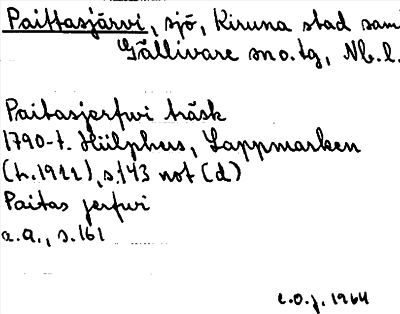 Paittasjärvi, sjö, Kiruna stad sam
Gällivare sn o. tg, Nb. l.
Paitasjerfwi träsk
1790-t. Hülphers, Lappmarken
(tr. 1922), s. 143 not (d)
Paitas jerfwi
a.a., s. 161
C.O.J. 1964